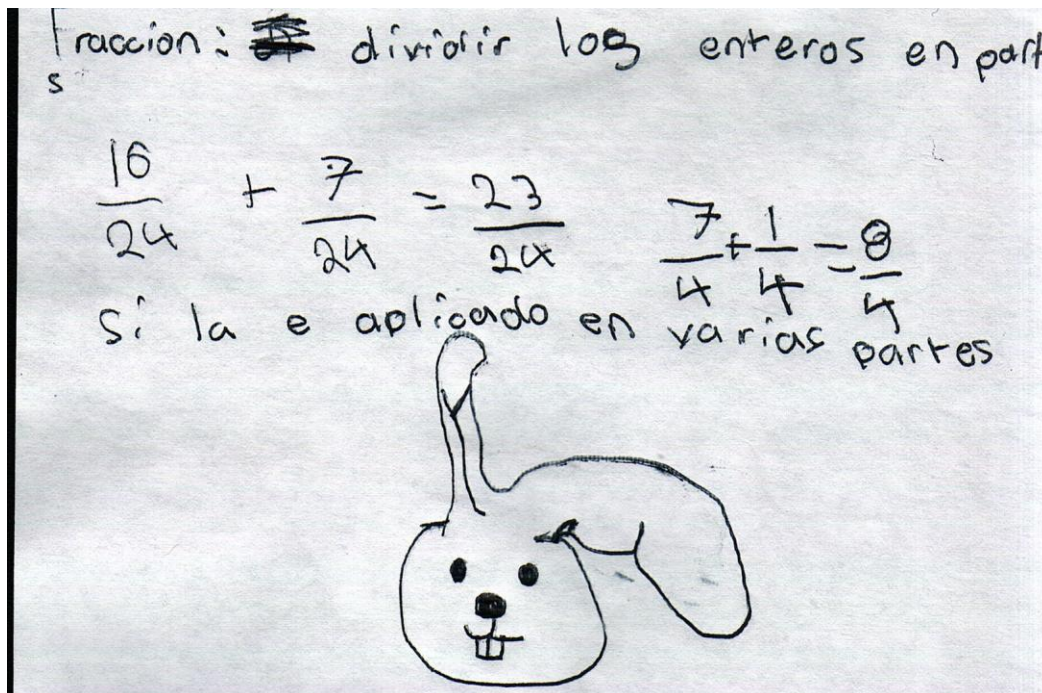 fraccion: dividir los enteros en part
s
16/24 + 7/24 = 23/24
7/4 + 1/4 = 8/4
Si la e aplicado en varias partes